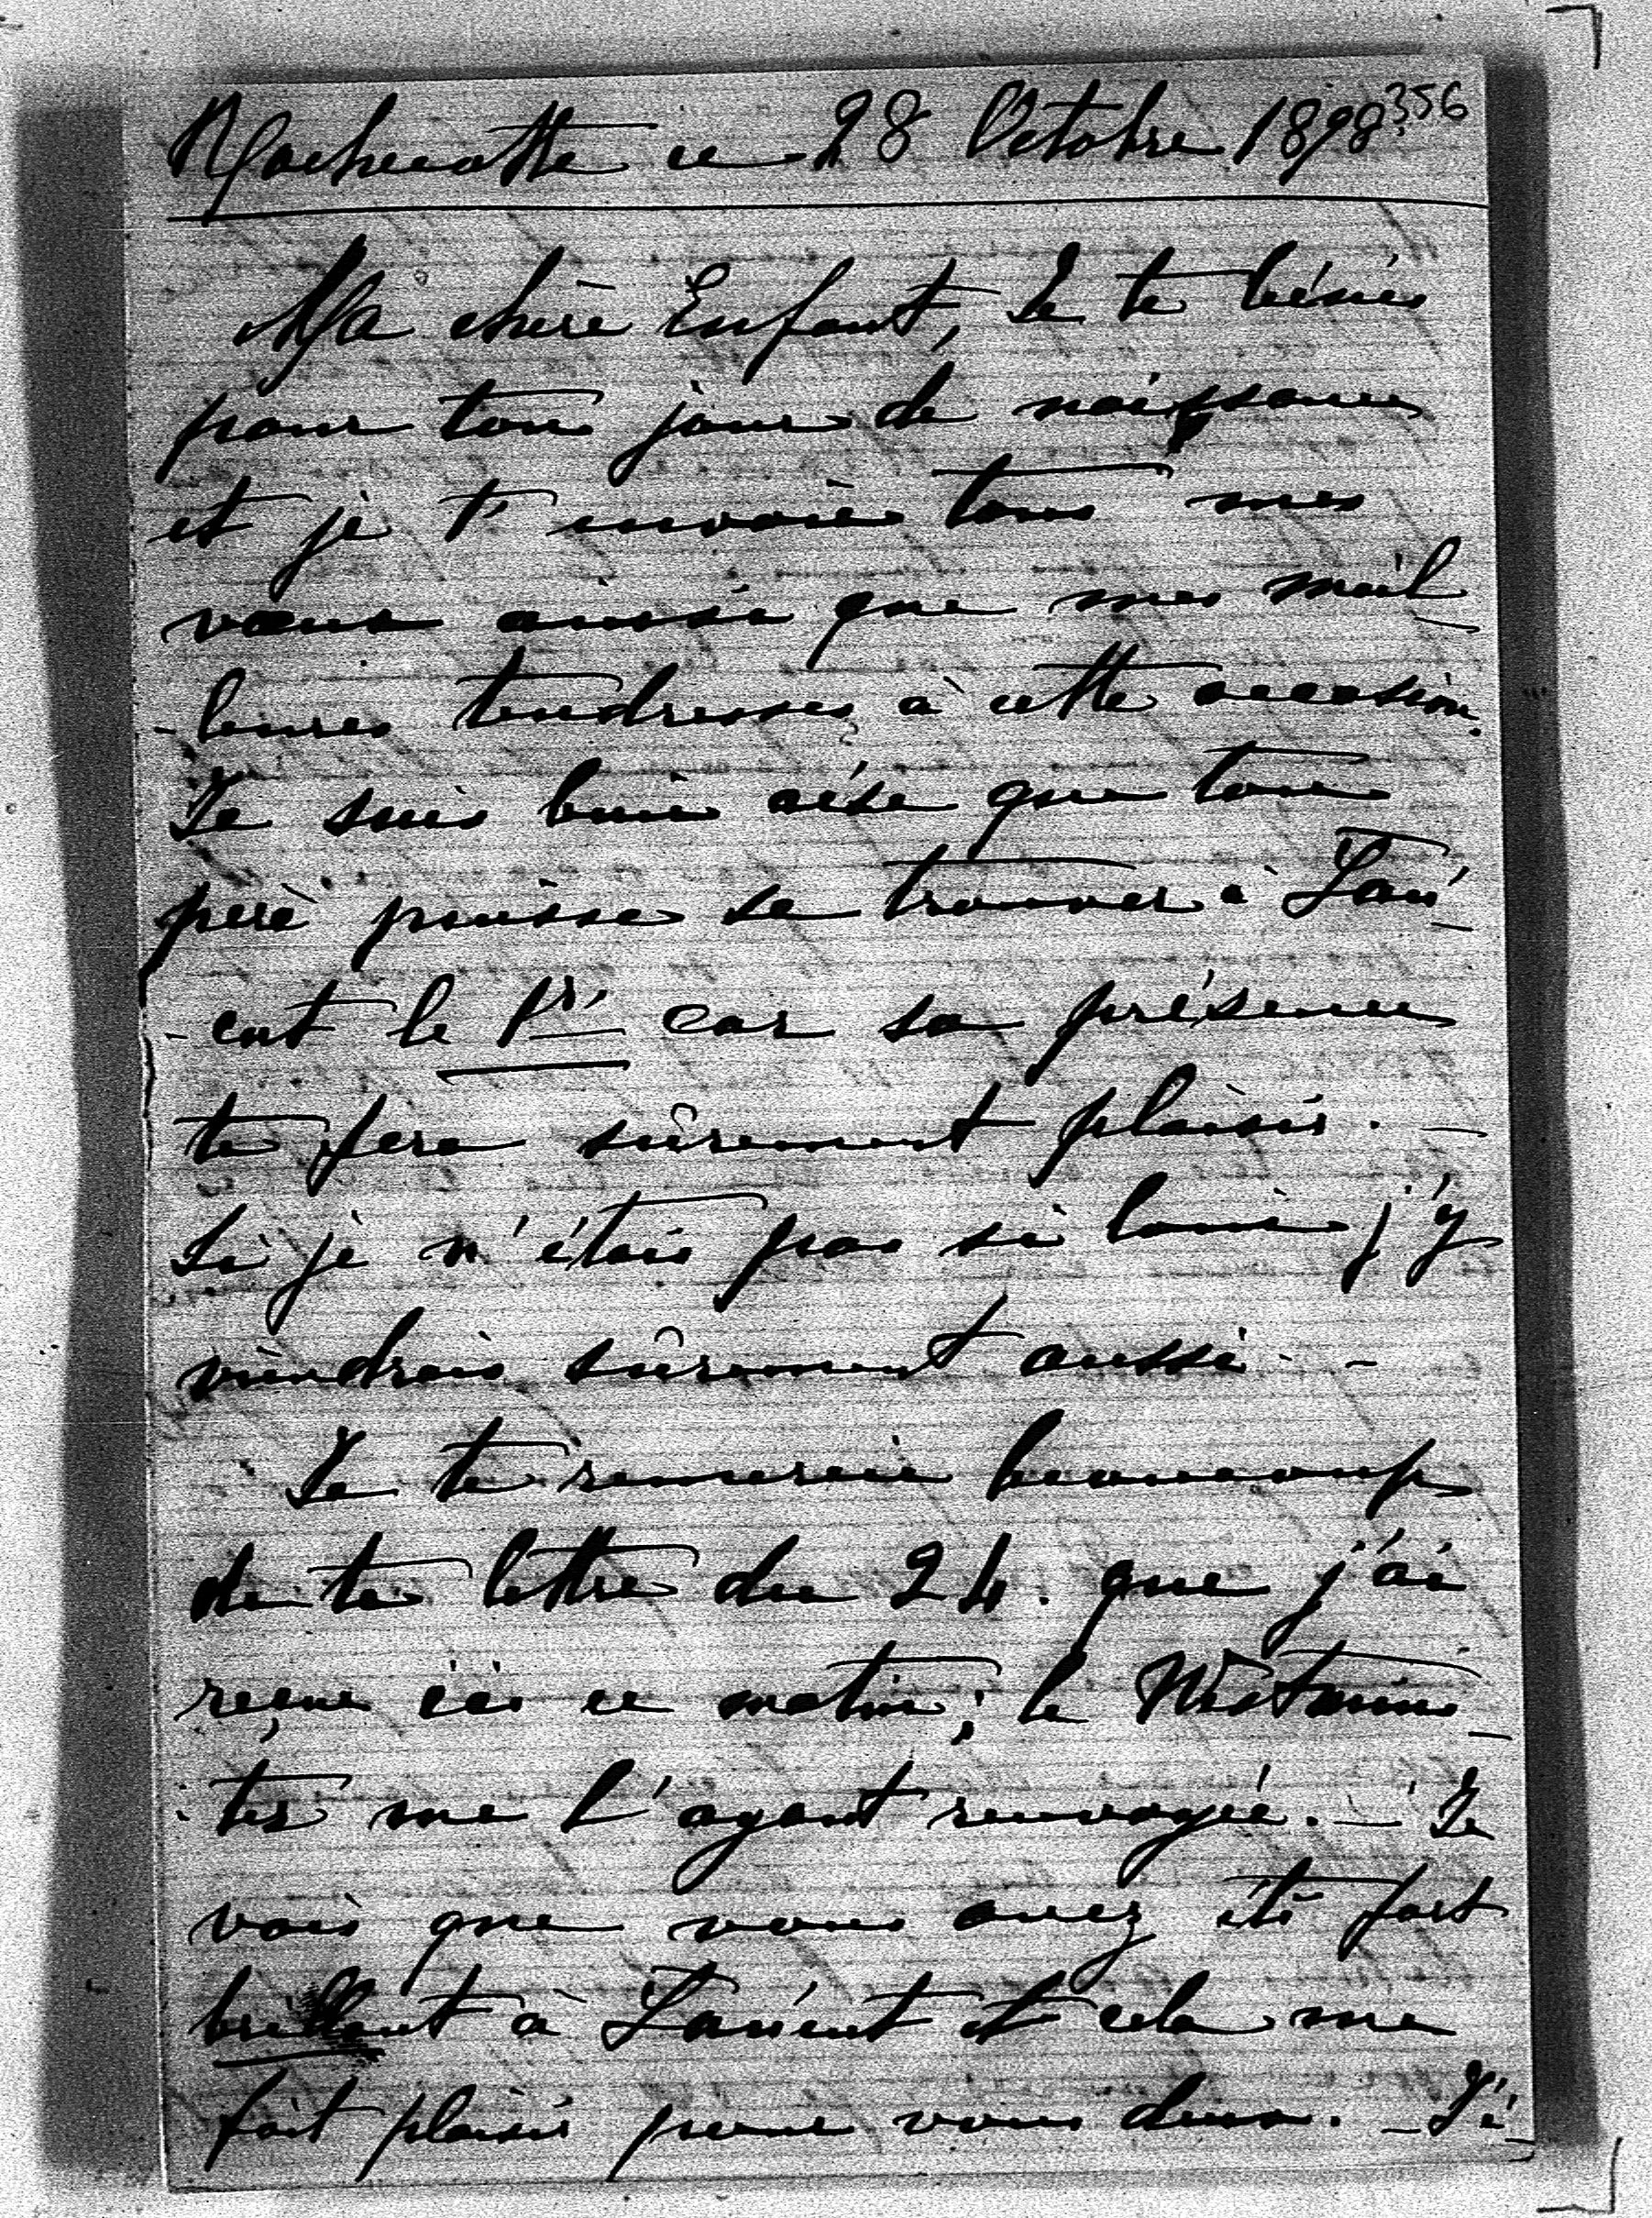 Rochecotte ce 28 Octobre 1898 356
Ma chère Enfant, Je te bénis
pour ton jour de naissance
et je t'envoie tous mes
vœux ainsi que mes meil-
-leures tendresses à cette occasion.
Je suis bien aise que ton
père puisse se trouver à
-cut le 1r, car sa présence
te fera sûrement plaisir. —
Si je n'étais pas si loin j'y
viendrais sûrement aussi. -
Je te remercie beaucoup
de ta lettre du 24. que j'ai
reçue ici ce matin; le Westmins-
-ter me l'ayant renvoyée. — Je
vois que vous avez été fort
brillant à et cela me
fait plaisir pour vous deux. — J'é-